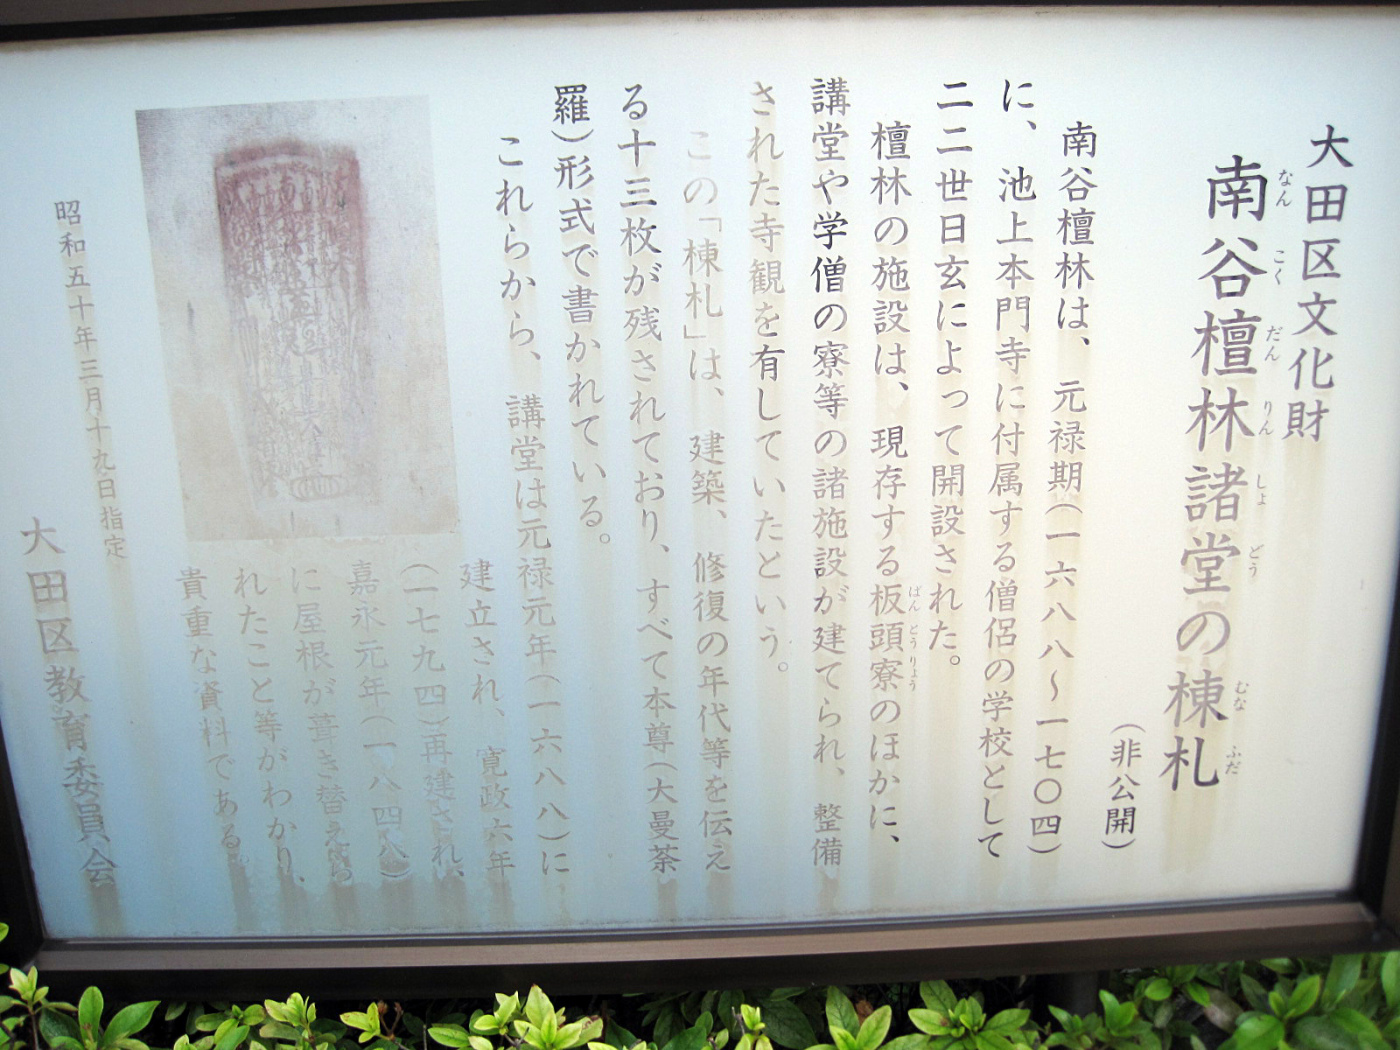 大田区文化財
南谷檀林諸堂の棟札
なん こく だん りん しょ どう むな ふだ
（非公開）
南谷檀林は、元禄期（一六八八～一七〇四）
に、池上本門寺に付属する僧侶の学校として
二二世日玄によって開設された。
檀林の施設は、現存する板頭寮のほかに、
ばん とう りょう
講堂や学僧の寮等の諸施設が建てられ、整備
された寺観を有していたという。
この「棟札」は、建築、修復の年代等を伝え
る十三枚が残されており、すべて本尊（大曼荼
羅）形式で書かれている。
これらから、講堂は元禄元年（一六八八）に
建立され、寛政六年
（一七九四）再建され、
嘉永元年（一八四八）
に屋根が葺き替えら
れたこと等がわかり、
貴重な資料である。
昭和五十年三月十九日指定
大田区教育委員会